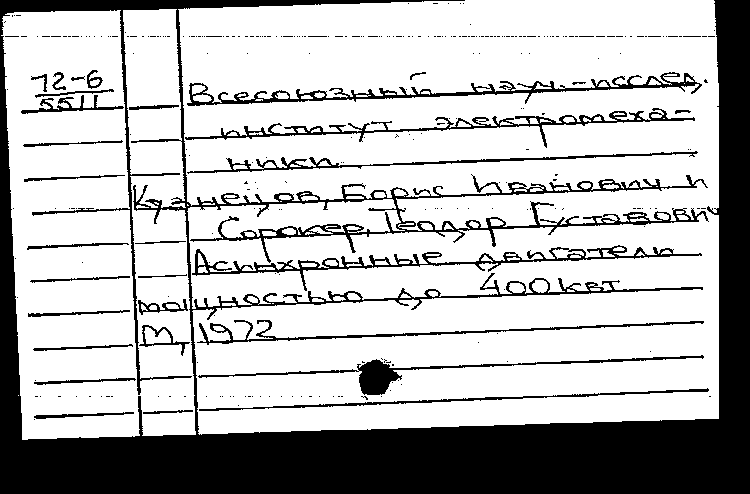 72-6
5511
Всесоюзный науч.-исслед.
институт электромеха-
ники.
Кузнецов, Борис Иванович и
Сорокер, Теодор Густавович
Асинхронные двигатели
мощностью до 400 квт.
М, 1972